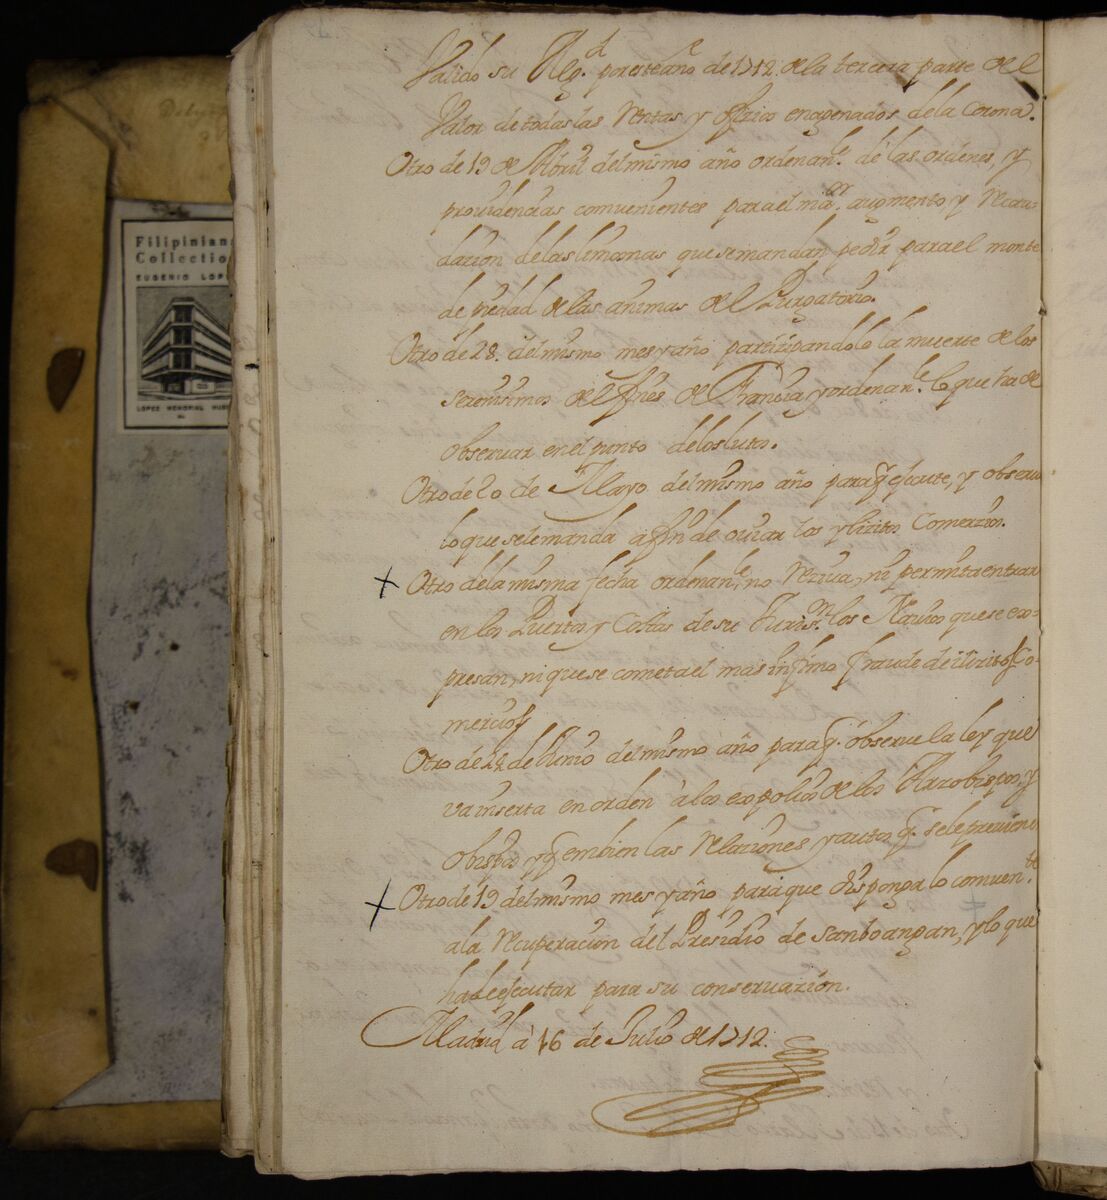 Filipiniana
Collection
EUGENIO LOPEZ
LOPEZ MEMORIAL MUSEUM
Valido su Mgd. por este año de 1712. de la tercera parte del
Valor de todas las Rentas y ofizios enagenados de la Corona.
Otro de 19 de Abril del mismo año ordenanle. dé las ordenes, y
providencias convenientes para el mayor. augmento y Recau-
dazion de las limosnas que se mandan pedir para el monte
de piedad de las animas del Purgatorio.
Otro de 28. del mismo mes y año partizipandole la muerte de los
serenisimos Delfines de Francia y ordenanle. lo que ha de
observar en el punto de los lutos.
Otro de 20 de Mayo del mismo año para q execute, y observe
lo que se le manda a fin de evitar los ylizitos Comerzios.
Otro de la misma fecha ordenanle, no Reziva, ni permita entrar
en los Puertos y Costas de su Jurisn. los Navios que se ex-
presan, ni que se cometa el mas infimo fraude de ilizitos Co-
mercios
Otro de 22 de Junio del mismo año para q. observe la ley que
va inserta en orden à los expolios de los Arzobispos, y
obispos y q embien las Relaziones y autos q. se le previene
Otro de 19 del mismo mes y año para que disponga lo convente.
a la recuperazion del Presidio de Samboangan, y lo que
ha de executar para su conservazion.
Madrid à 16 de Julio de 1712.